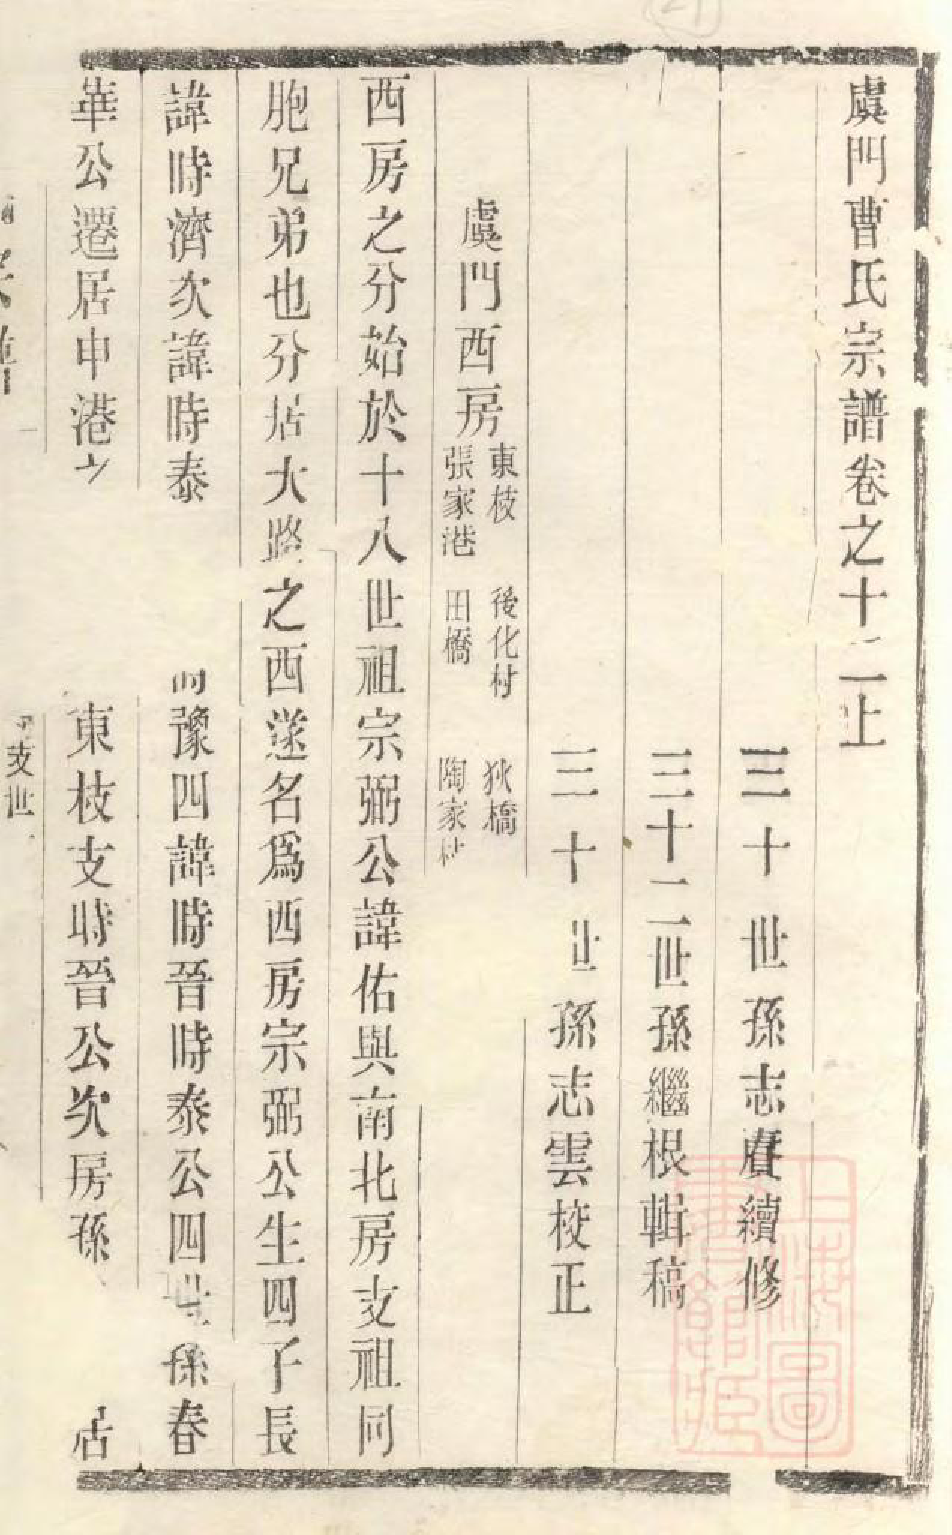 虞門曹氏宗譜卷之十二上
三十世孫志賡續修
三十二世孫繼根輯稿
三十世孫志雲校正
虞門西房
東枝 後化村 狄橋
張家港 田橋 陶家村
西房之分始於十八世祖宗弼公諱佑與南北房支祖同
胞兄弟也分居大路之西遂名爲西房宗弼公生四子長
諱時濟次諱時泰 豫四諱時晉時泰公四世孫春
華公遷居申港 東枝支時晉公次房孫 居
支世
上海圖書館藏